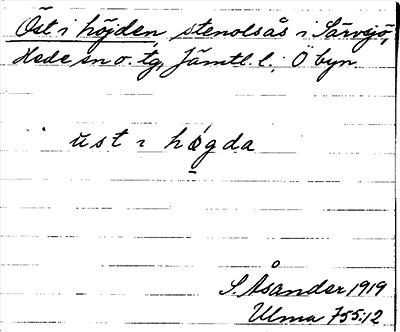 Öst i höjden stenolsås i Särvsjö,
Hede sn o. tg, Jämtl. l.; Ö byn.
üst ı hǿgda
S. Åsander 1919
Ulma 755:12